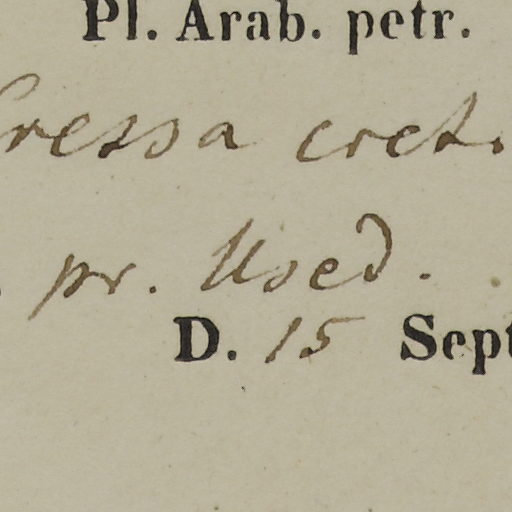 Pl. Arab. petr.
Cressa cret.
pr. Used.
D. 15 Sept